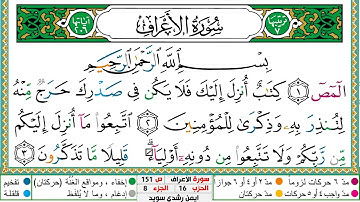 ترتيبها ٧
سُورَةُ الأَعْرَافِ
آياتها ٢٠٦
بِسْمِ ٱللَّهِ ٱلرَّحْمَٰنِ ٱلرَّحِيمِ
الٓمٓصٓ ١ كِتَٰبٌ أُنزِلَ إِلَيْكَ فَلَا يَكُن فِى صَدْرِكَ حَرَجٌ مِّنْهُ
لِتُنذِرَ بِهِۦ وَذِكْرَىٰ لِلْمُؤْمِنِينَ ٢ ٱتَّبِعُوا۟ مَآ أُنزِلَ إِلَيْكُم
مِّن رَّبِّكُمْ وَلَا تَتَّبِعُوا۟ مِن دُونِهِۦٓ أَوْلِيَآءَ ۗ قَلِيلًا مَّا تَذَكَّرُونَ ٣
مد ٦ حركات لزوما مد ٢ أو ٤ أو ٦ جوازا
مد واجب ٤ أو ٥ حركات مد حركتان
سورة الأعراف ص 151
الحزب 16 الجزء 8
أيمن رشدي سويد
إخفاء، ومواقع الغنة (حركتان) تفخيم
إدغام، وما لا يُلفظ قلقلة